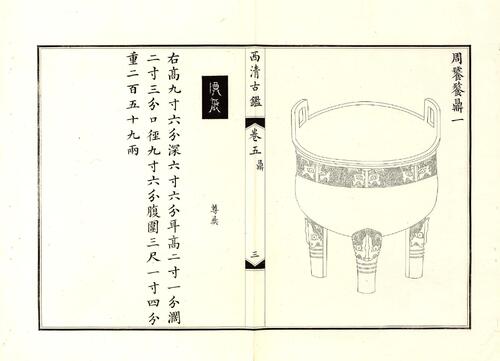 周饕餮鼎一
西清古鑑
卷五
鼎
三
右高九寸六分深六寸六分耳高二寸一分濶
二寸三分口徑九寸六分腹圍三尺一寸四分
重二百五十九兩